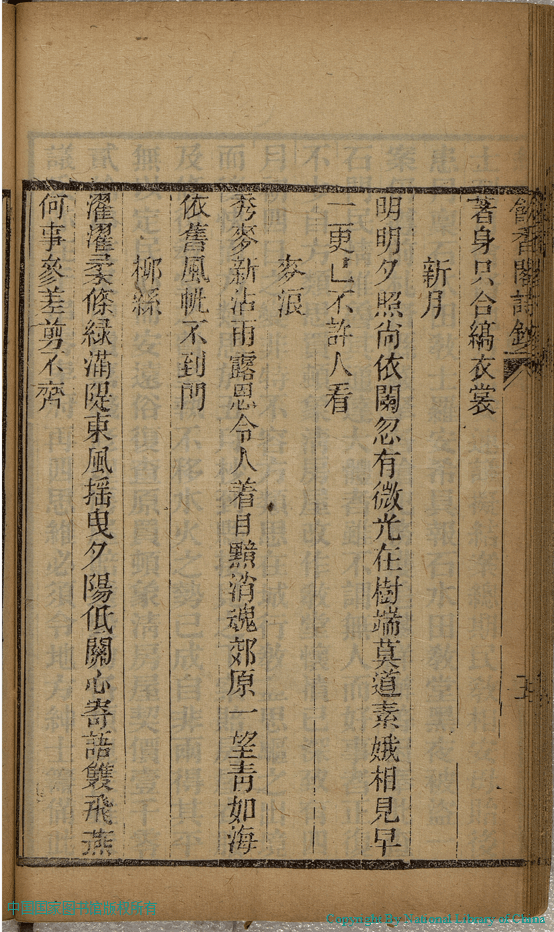 香閣詩鈔
著身只合縞衣裳
新月
明明夕照尙依闌忽有微光在樹端莫道素娥相見早
一更已不許人看
麥浪
秀麥新沾雨露恩令人着目黯消魂郊原一望靑如海
依舊風帆不到門
柳絲
濯濯柔條緑滿隄東風搖曳夕陽低關心寄語雙飛燕
何事參差剪不齊
中国国家图书馆版权所有
Copyright By National Library of China